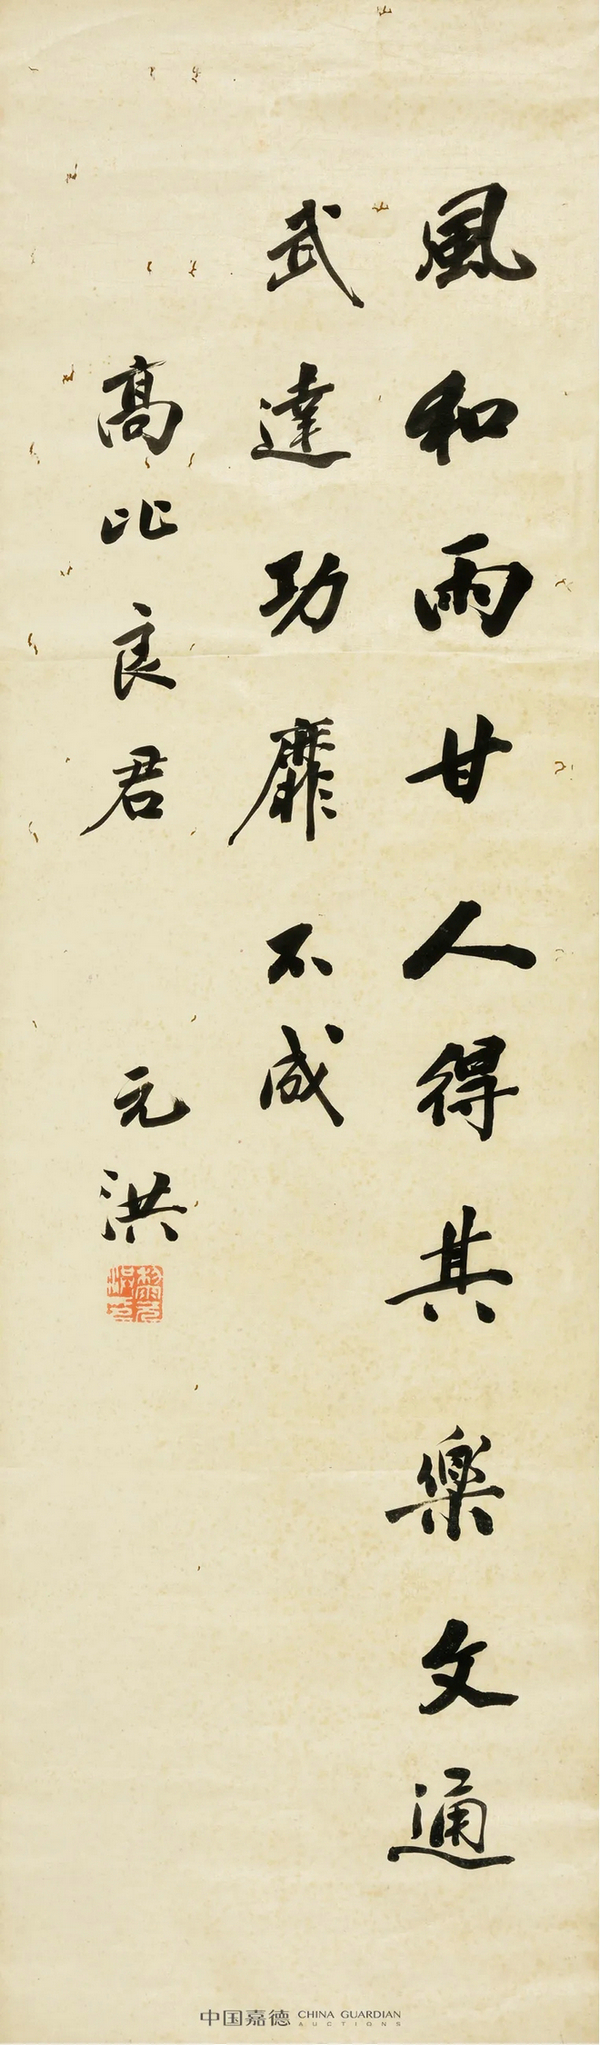 風和雨甘人得其樂文通
武達功靡不成
高比良君
元洪
黎元洪印
中国嘉德 CHINA GUARDIAN
AUCTIONS